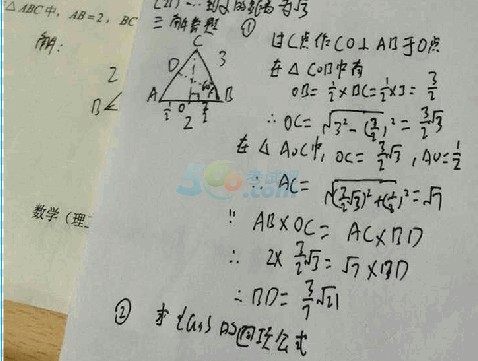 △ABC中，AB=2，BC
解：
2
B
数学（理工
三 解答题 ①
C
D 3
A B
1/2 O 3/2
2
过C点作CO⊥AB于O点
在△COB中有
OB=1/2×BC=1/2×3=3/2
∴OC=√(3²-(3/2)²)=3/2√3
在△AOC中，OC=3/2√3，AO=1/2
∴AC=√((3/2√3)²+(1/2)²)=√7
∵AB×OC=AC×BD
∴2×3/2√3=√7×BD
∴BD=3/7√21
② 求{an}的通项公式